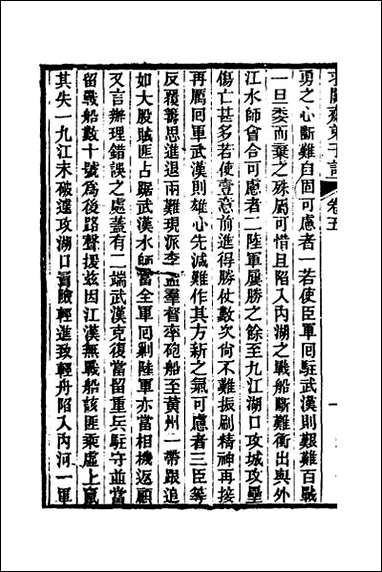 求闕齋弟子記
卷五
一
勇之心斷難自固可慮者一若使臣軍回駐武漢則艱難百戰
一旦委而棄之殊屬可惜且陷入內湖之戰船斷難衝出與外
江水師會合可慮者二陸軍屢勝之餘至九江湖口攻城攻壘
傷亡甚多若使壹意前進得勝仗數次尚不難振刷精神再接
再厲回軍武漢則雄心先減難作其方新之氣可慮者三臣等
反覆籌思進退兩難現派李孟羣督率砲船至黃州一帶跟追
如大股賊匪占踞武漢水師當全軍回剿陸軍亦當相機返顧
又言辦理錯誤之處蓋有二端武漢克復當留重兵駐守並當
留戰船數十號為後路聲援兹因江漢無戰船該匪乘虛上竄
其失一九江未破遽攻湖口冒險輕進致輕舟陷入內河一軍